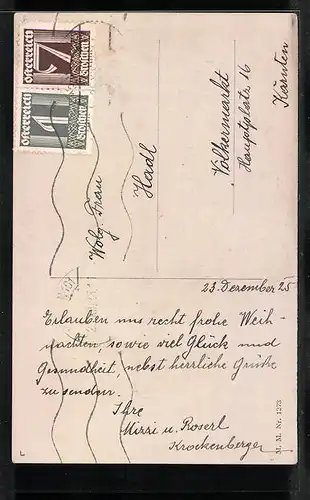 Österreich
7
Groschen
Österreich
1
Groschen
Wolg. Frau
Hadl
Völkermarkt
Hauptplatz 16
Kärnten
23 Dezember 25
Erlauben uns recht frohe Weih-
nachten, sowie viel Glück und
Gesundheit, nebst herrliche Grüße
zu senden.
Ihre
Mizzi u. Roserl
Krockenberger
M. M. Nr. 1273